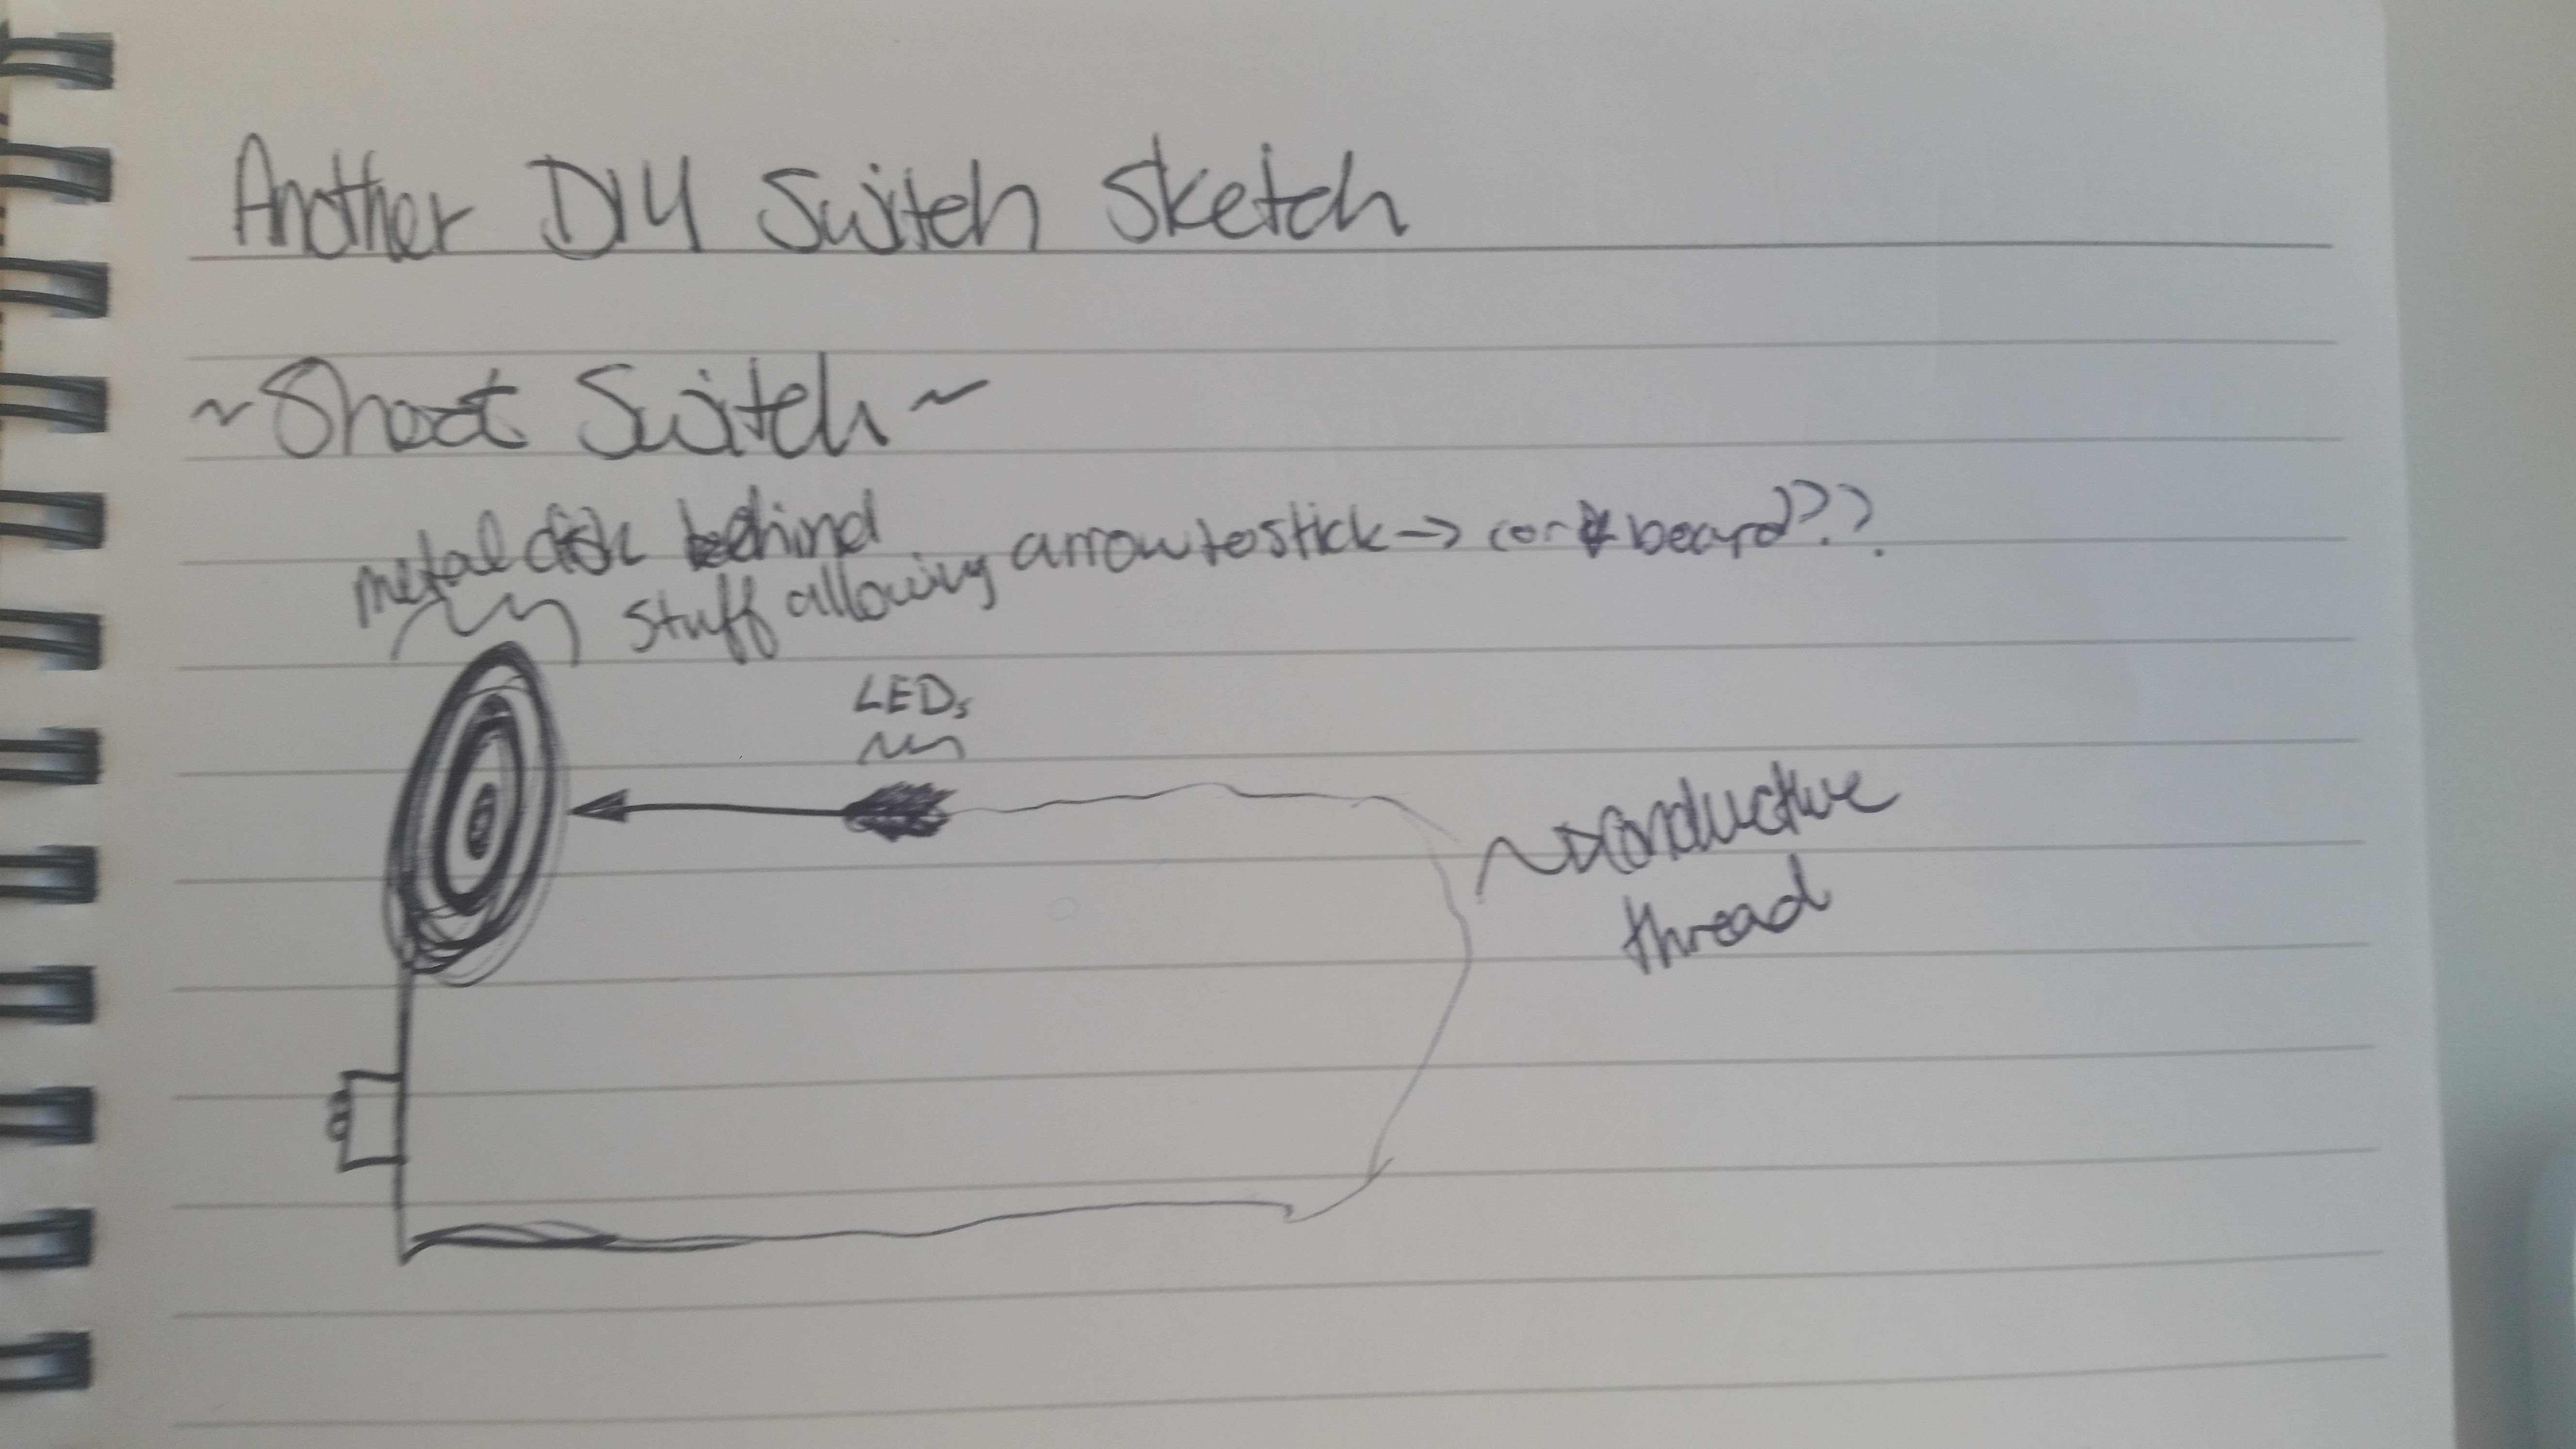 Another DIY Switch Sketch
~Shoot Switch~
metal disk behind
stuff allowing arrow to stick → cork board??
LEDs
conductive
thread